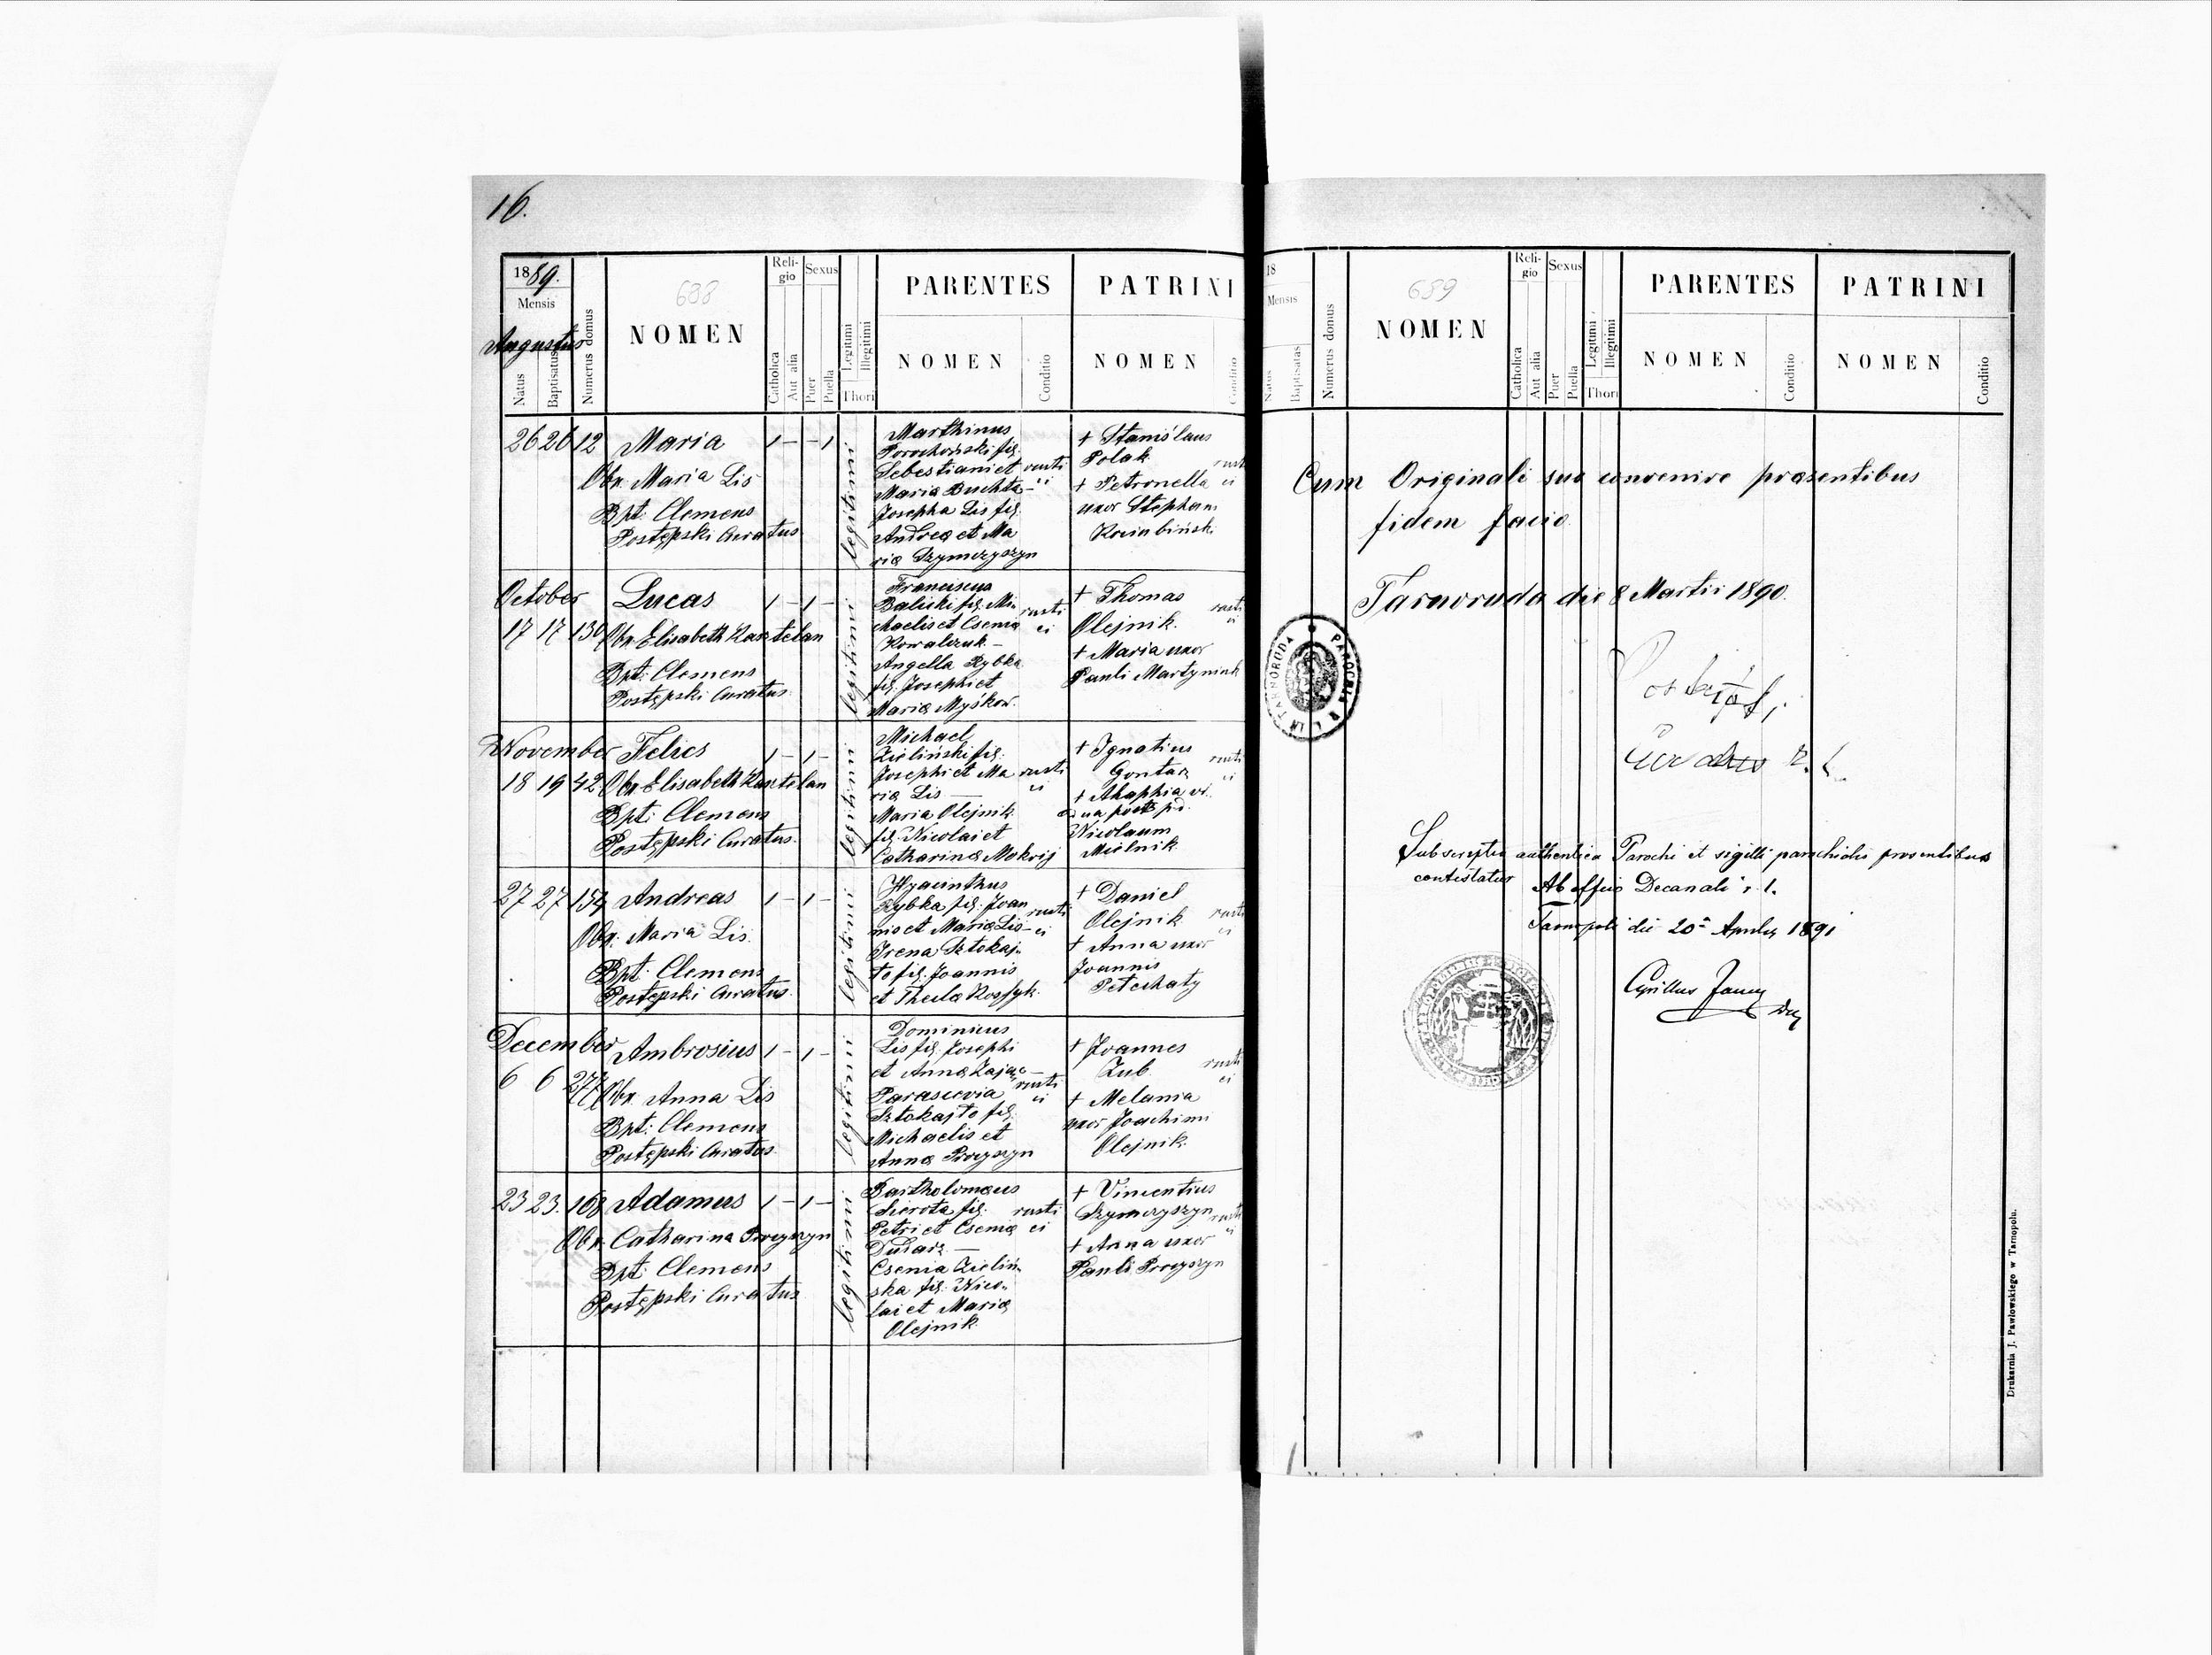 16.
1889.
Mensis
Augustus
Natus
Baptisatus
Numerus domus
688
NOMEN
Reli-
gio
Catholica
Aut alia
Sexus
Puer
Puella
Legitimi
Illegitimi
Thori
PARENTES
NOMEN
Conditio
PATRINI
NOMEN
Conditio
26 26 12 Maria 1 - - 1
Obx. Maria Lis
Bpt. Clemens
Postępski Curatus
legitimi
Marthinus
Sebestiani et
Maria Buchta
Josepha Lis fil.
Andreæ et Ma
riæ Szymczyszyn
rusti
ci
+ Stanislaus
Polak
+ Petronella
uxor Stephani
rusti
ci
October
17 17 130 Lucas 1 - 1 -
Obx. Elisabeth Kasztelan
Bpt. Clemens
Postępski Curatus
legitimi
Franciscus
Balicki fil. Mi-
chaelis et Cseniæ
Kowalczuk -
Angella Rybka
fil. Josephi et
Mariæ Myśkow.
rusti
ci
+ Thomas
Olejnik.
+ Maria uxor
Pauli Martyniuk
rusti
ci
November
18 19 42 Felics 1 - 1 -
Obx. Elisabeth Kasztelan
Bpt. Clemens
Postępski Curatus.
legitimi
Michael
Zieliński fil.
Josephi et Ma
riæ Lis
Maria Olejnik
fil. Nicolai et
Catharinæ Mokrij
rusti
ci
+ Ignatius
Gontar
+ Ahaphia vi
dua post
Nicolaum
Mielnik
rusti
ci
27 27 154 Andreas 1 - 1 -
Obx. Maria Lis
Bpt. Clemens
Postępski Curatus.
legitimi
Hyacinthus
Rybka fil. Joan
nis et Mariæ Lis -
Irena Sztokaj-
to fil. Joannis
et Theclæ
rusti
ci
+ Daniel
Olejnik
+ Anna uxor
Joannis
Petechaty
rusti
ci
December
6 6 277 Ambrosius 1 - 1 -
Obx. Anna Lis
Bpt. Clemens
Postępski Curatus.
legitimi
Dominicus
Lis fil. Josephi
et Annæ Zając
Parascevia
Sztokajto fil.
Michaelis et
Annæ Procyszyn
rusti
ci
+ Joannes
Zub
+ Melania
uxor Joachimi
Olejnik.
rusti
ci
23 23. 168 Adamus 1 - 1 -
Obx. Catharina Procyszyn
Bpt. Clemens
Postępski Curatus
legitimi
Bartholomæus
Sierota fil.
Petri et Cseniæ
Csenia Zieliń-
ska fil. Nico-
lai et Mariæ
Olejnik
rusti
ci
+ Vincentius
Szymczyszyn
+ Anna uxor
Pauli Procyszyn
rusti
ci
18
Mensis
Natus
Baptisatas
Numerus domus
689
NOMEN
Reli-
gio
Catholica
Aut alia
Sexus
Puer
Puella
Legitimi
Illegitimi
Thori
PARENTES
NOMEN
Conditio
PATRINI
NOMEN
Conditio
Cum Originali suo convenire præsentibus
fidem facio
Tarnoruda die 8 Martii 1890.
PAROCHIA R. L. IN TARNORUDA
Postępski
Curatus r. l.
Subscriptio authentica Parochi et sigilli parochialis præsentibus
contestatur
Ab officio Decanali r. l.
Tarnopoli die 20â Aprilis 1891
Cyrillus
Drukarnia J. Pawłowskiego w Tarnopolu.